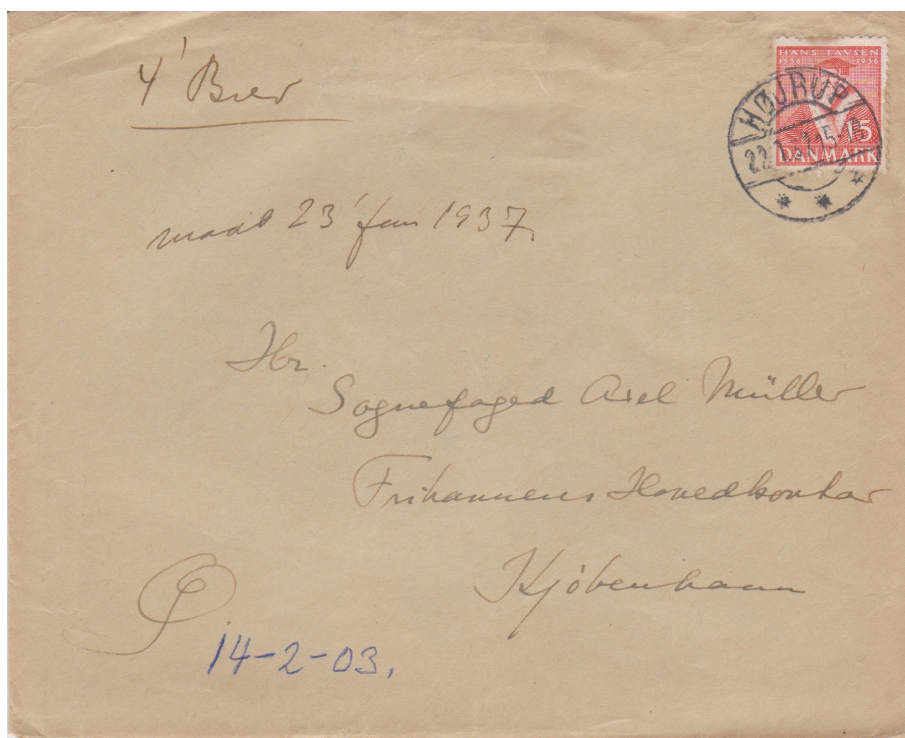 4' Brev
HANS TAVSEN
1536 1936
15
DANMARK
HØJRUP
22.1.
23' Jan 1937.
Hr.
Sognefoged Axel Müller
Frihavnens Hovedkontor
Kjøbenhavn
14-2-03.